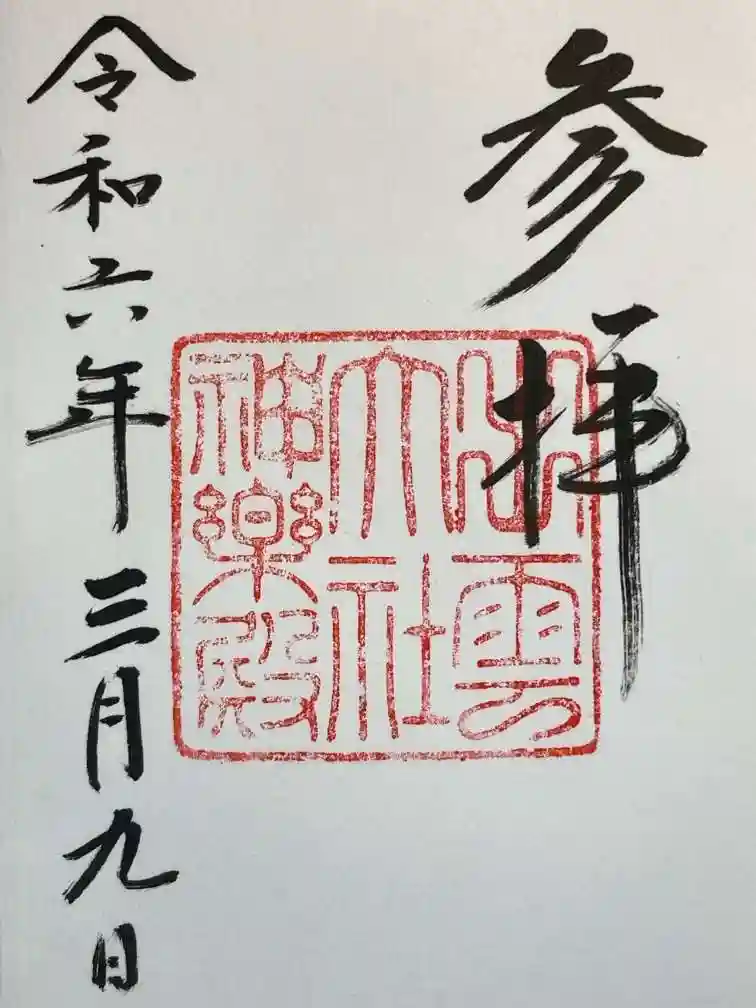 参拝
出雲
大社
神楽殿
令和六年三月九日